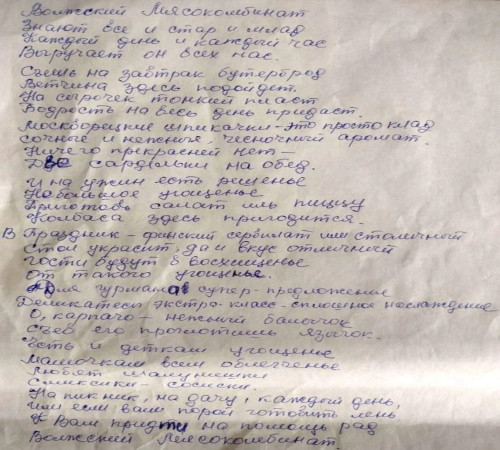 Волжский Мясокомбинат
Знают все и стар и млад
Каждый день и каждый час
Выручает он всех нас.
Съешь на завтрак бутерброд
Ветчина здесь подойдет.
На сырочек тонкий пласт
Бодрость на весь день придаст.
Москворецкие шпикачки - это просто клад
сочные и нежные, чесночный аромат.
Ничего прекрасней нет -
Две сардельки на обед.
И на ужин есть решенье
Небольшое угощенье
Приготовь салат иль пиццу
Колбаса здесь пригодится.
В Праздник - финский сервелат или столичный
Стол украсит, да и вкус отличный
Гости будут в восхищенье
От такого угощенье.
Для гурмана супер-предложение
Деликатесы экстра-класс - сплошное наслаждение
О, карпачо - нежный балычок
Съев его проглотишь язычок.
Есть и деткам угощенье
Мамочкам всем облегченье
Любят шалунишки
Смиксики - сосиски.
На пикник, на дачу, каждый день,
Или если вам порой готовить лень
К Вам придти на помощь рад
Волжский Мясокомбинат.